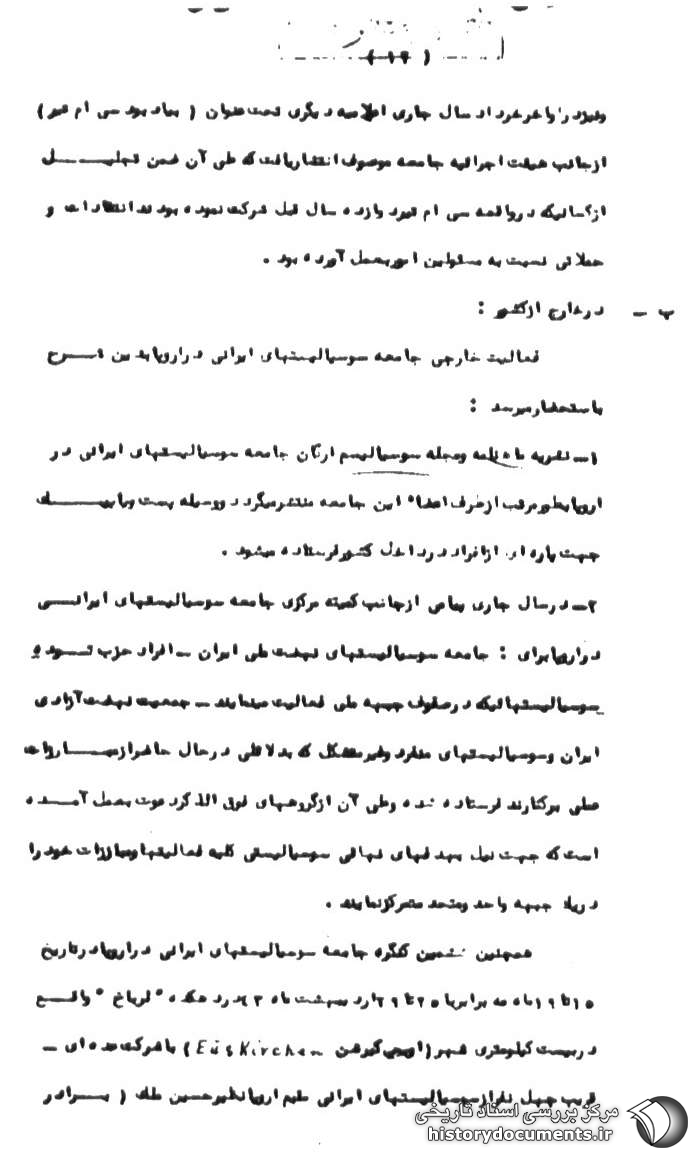 ( ۱۴ )
ونیز در اواخر خرداد سال جاری اعلامیه دیگری تحت عنوان ( بیاد بود سی ام تیر )
از جانب هیئت اجرائیه جامعه موصوف انتشار یافت که طی آن ضمن تجلیـــــل
از کسانیکه در واقعه سی ام تیر دوازده سال قبل شرکت نموده بودند انتقادات و
حملاتی نسبت به مسئولین امور بعمل آورده بود .
ب ــ در خارج از کشور :
فعالیت خارجی جامعه سوسیالیستهای ایرانی در اروپا بدین شـــرح
باستحضار میرسد :
۱ــ نشریه ماهنامه ومجله سوسیالیسم ارگان جامعه سوسیالیستهای ایرانی در
اروپا بطور مرتب از طرف اعضاء این جامعه منتشر میگردد و وسیله پست ویا پیـــــک
جهت پاره ای از افراد در داخل کشور فرستاده میشود .
۲ــ در سال جاری پیامی از جانب کمیته مرکزی جامعه سوسیالیستهای ایرانـــی
در اروپا برای : جامعه سوسیالیستهای نهضت ملی ایران ــ افراد حزب تـــوده و
سوسیالیستهائیکه در صفوف جبهه ملی فعالیت مینمایند ــ جمعیت نهضت آزادی
ایران وسوسیالیستهای منفرد وغیر متشکل که بدلائلی در حال حاضر از مبـــــارزات
عملی برکنارند فرستاده شده وطی آن از گروههای فوق الذکر دعوت بعمل آمـــده
است که جهت نیل بهدفهای نهائی سوسیالیستی کلیه فعالیتها ومبارزات خود را
در یک جبهه واحد ومتحد متمرکز نمایند .
همچنین ششمین کنگره جامعه سوسیالیستهای ایرانی در اروپا در تاریخ
۱۵ تا ۱۹ ماه مه برابر با ۲۵ تا ۲۹ اردیبهشت ماه ۴۳ در دهکده " فرباخ " واقـــع
در بیست کیلومتری شهر ( اویس کیرشن Euskirchen ) با شرکت عده ای ــ
قریب چهل نفر از سوسیالیستهای ایرانی مقیم اروپا نظیر حسین ملک ( بـــرادر
مرکز بررسی اسناد تاریخی
historydocuments.ir